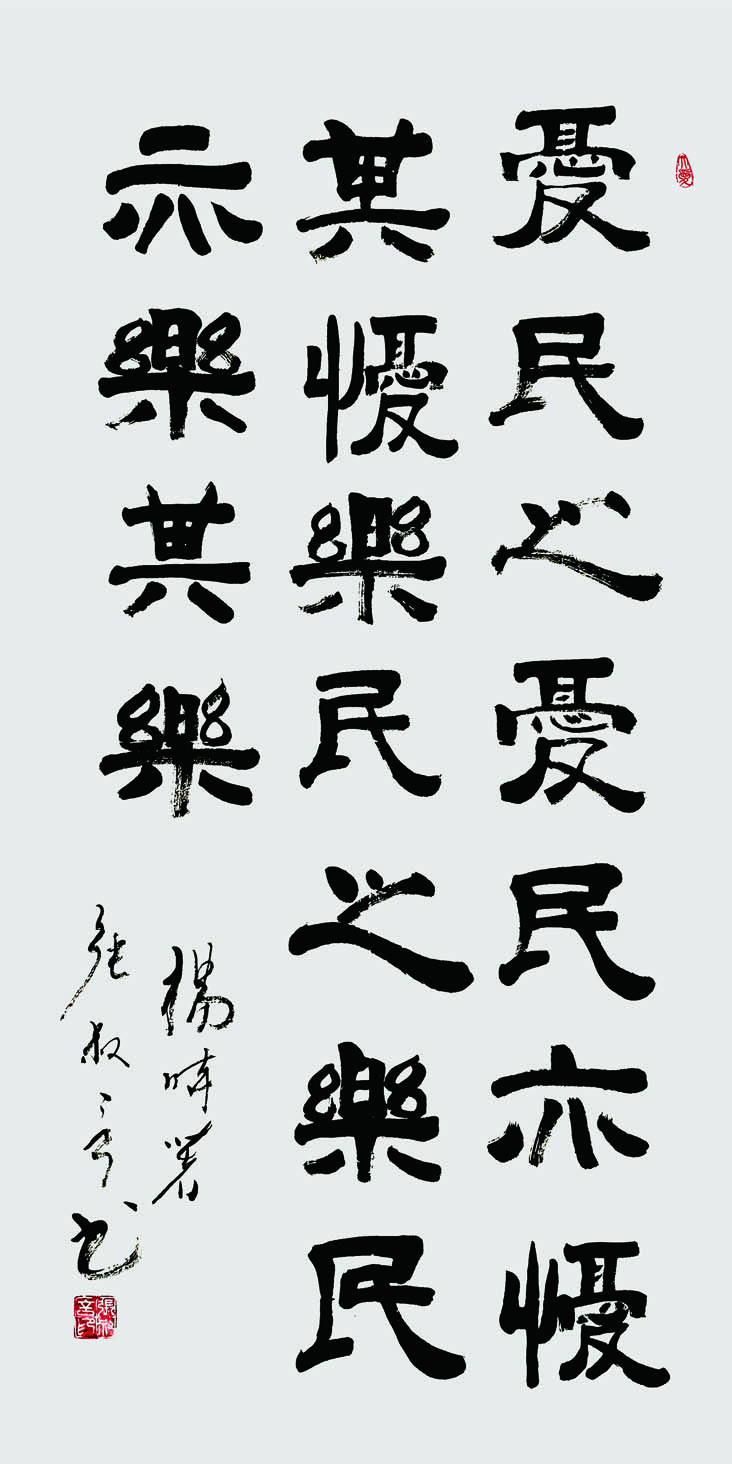 憂民之憂民亦懮
其懮樂民之樂民
亦樂其樂
楊時著
張叔章书